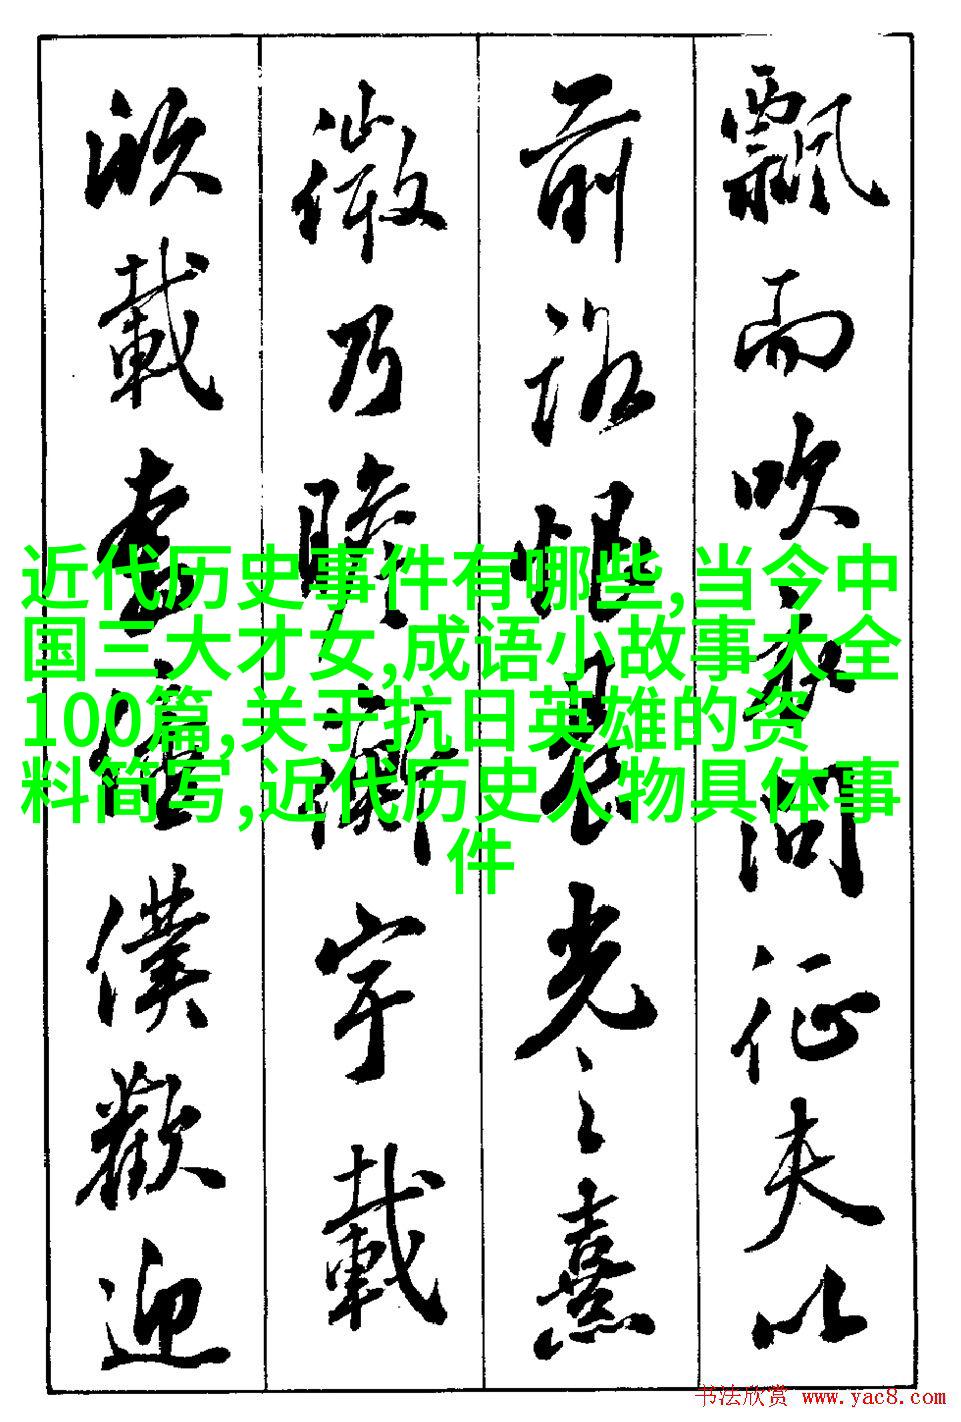 飄而吹衣問征夫以
前路恨晨光之熹
微乃瞻衡宇載
欣載奔僮僕歡迎
近代历史事件有哪些,当今中
国三大才女,成语小故事大全
100篇,关于抗日英雄的资
料简写,近代历史人物具体事
件
书法欣赏 www.yac8.com